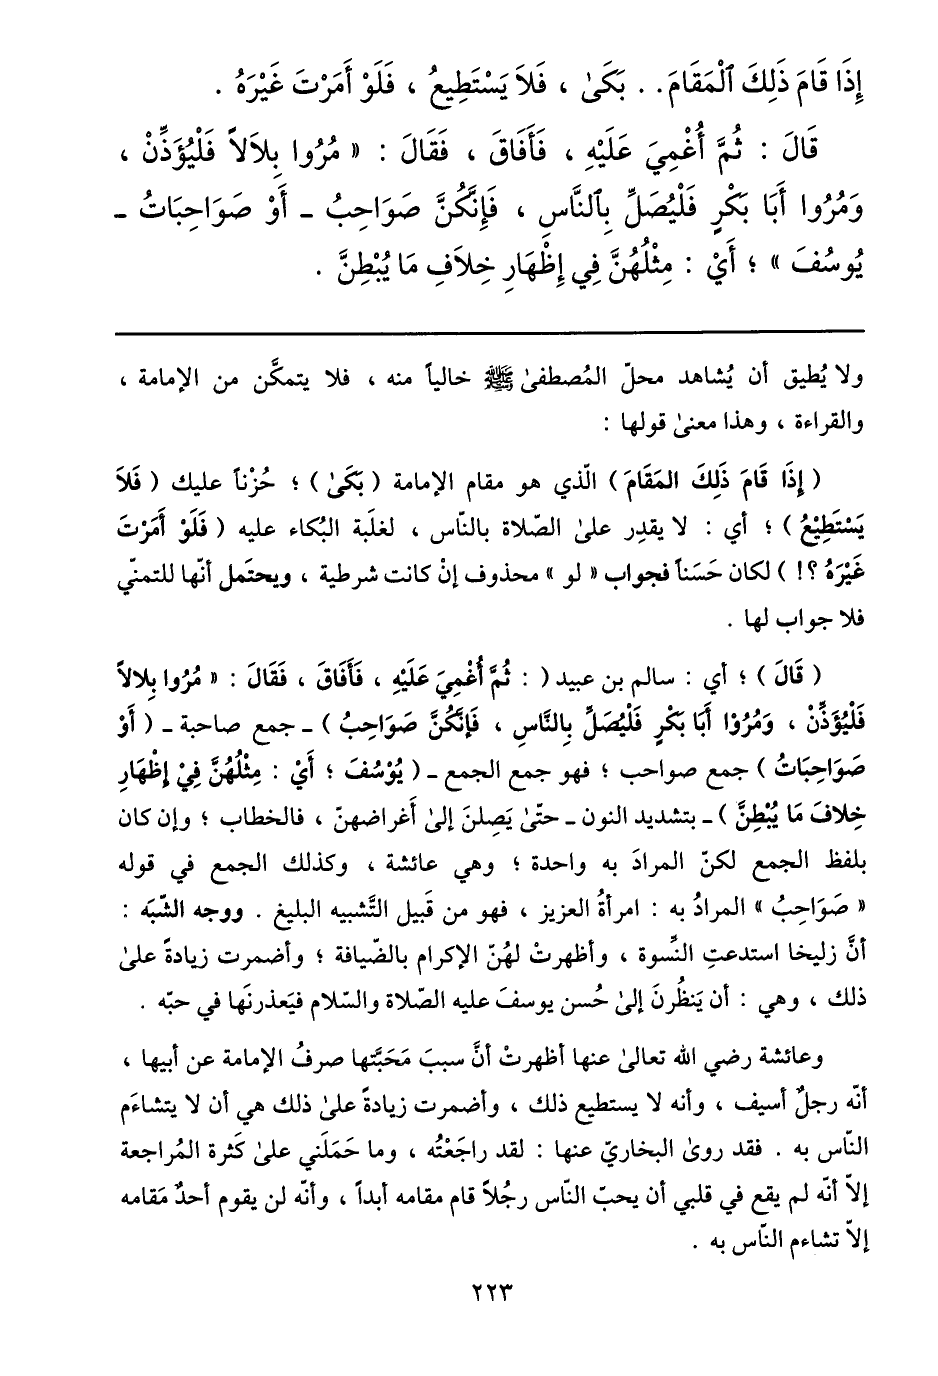 إِذَا قَامَ ذَلِكَ ٱلْمَقَامَ . . بَكَىٰ ، فَلاَ يَسْتَطِيعُ ، فَلَوْ أَمَرْتَ غَيْرَهُ .
قَالَ : ثُمَّ أُغْمِيَ عَلَيْهِ ، فَأَفَاقَ ، فَقَالَ : « مُرُوا بِلاَلاً فَلْيُؤَذِّنْ ،
وَمُرُوا أَبَا بَكْرٍ فَلْيُصَلِّ بِٱلنَّاسِ ، فَإِنَّكُنَّ صَوَاحِبُ ـ أَوْ صَوَاحِبَاتُ ـ
يُوسُفَ » ؛ أَيْ : مِثْلُهُنَّ فِي إِظْهَارِ خِلاَفِ مَا يُبْطِنَّ .
ولا يُطيق أن يُشاهد محلّ المُصطفىٰ ﷺ خالياً منه ، فلا يتمكَّن من الإمامة ،
والقراءة ، وهذا معنىٰ قولها :
( إِذَا قَامَ ذَلِكَ المَقَامَ ) الّذي هو مقام الإمامة ( بَكَىٰ ) ؛ حُزْناً عليك ( فَلاَ
يَسْتَطِيْعُ ) ؛ أي : لا يقدِر علىٰ الصّلاة بالنّاس ، لغلَبة البُكاء عليه ( فَلَوْ أَمَرْتَ
غَيْرَهُ ؟! ) لكان حَسَناً فجواب « لو » محذوف إنْ كانت شرطية ، ويحتَمل أنّها للتمنّي
فلا جواب لها .
( قَالَ ) ؛ أي : سالم بن عبيد ( : ثُمَّ أُغْمِيَ عَلَيْهِ ، فَأَفَاقَ ، فَقَالَ : « مُرُوا بِلالاً
فَلْيُؤَذِّنْ ، وَمُرُوْا أَبَا بَكْرٍ فَلْيُصَلِّ بِالنَّاسِ ، فَإِنَّكُنَّ صَوَاحِبُ ) ـ جمع صاحبة ـ ( أَوْ
صَوَاحِبَاتُ ) جمع صواحب ؛ فهو جمع الجمع ـ ( يُوْسُفَ ؛ أَيْ : مِثْلُهُنَّ فِيْ إِظْهَارِ
خِلافَ مَا يُبْطِنَّ ) ـ بتشديد النون ـ حتّىٰ يَصِلنَ إلىٰ أَغراضهنّ ، فالخطاب ؛ وإن كان
بلفظ الجمع لكنّ المرادَ به واحدة ؛ وهي عائشة ، وكذلك الجمع في قوله
« صَوَاحِبُ » المرادُ به : امرأةُ العزيز ، فهو من قَبيل التَّشبيه البليغ . ووجه الشّبَه :
أنَّ زليخا استدعتِ النِّسوة ، وأظهرتْ لهُنّ الإكرام بالضّيافة ؛ وأضمرت زيادةً علىٰ
ذلك ، وهي : أن يَنظُرنَ إلىٰ حُسن يوسفَ عليه الصّلاة والسّلام فيَعذرنَها في حبّه .
وعائشة رضي الله تعالىٰ عنها أظهرتْ أنَّ سببَ مَحَبَّتها صرفُ الإمامة عن أبيها ،
أنّه رجلٌ أسيف ، وأنه لا يستطيع ذلك ، وأضمرت زيادةً علىٰ ذلك هي أن لا يتشاءَم
النّاس به . فقد روىٰ البخاريّ عنها : لقد راجَعْتُه ، وما حَمَلَني علىٰ كَثرة المُراجعة
إلاّ أنّه لم يقع في قلبي أن يحبّ النّاس رجُلاً قام مقامه أبداً ، وأنّه لن يقوم أحدٌ مَقامه
إلاّ تشاءم النّاس به .
٢٢٣